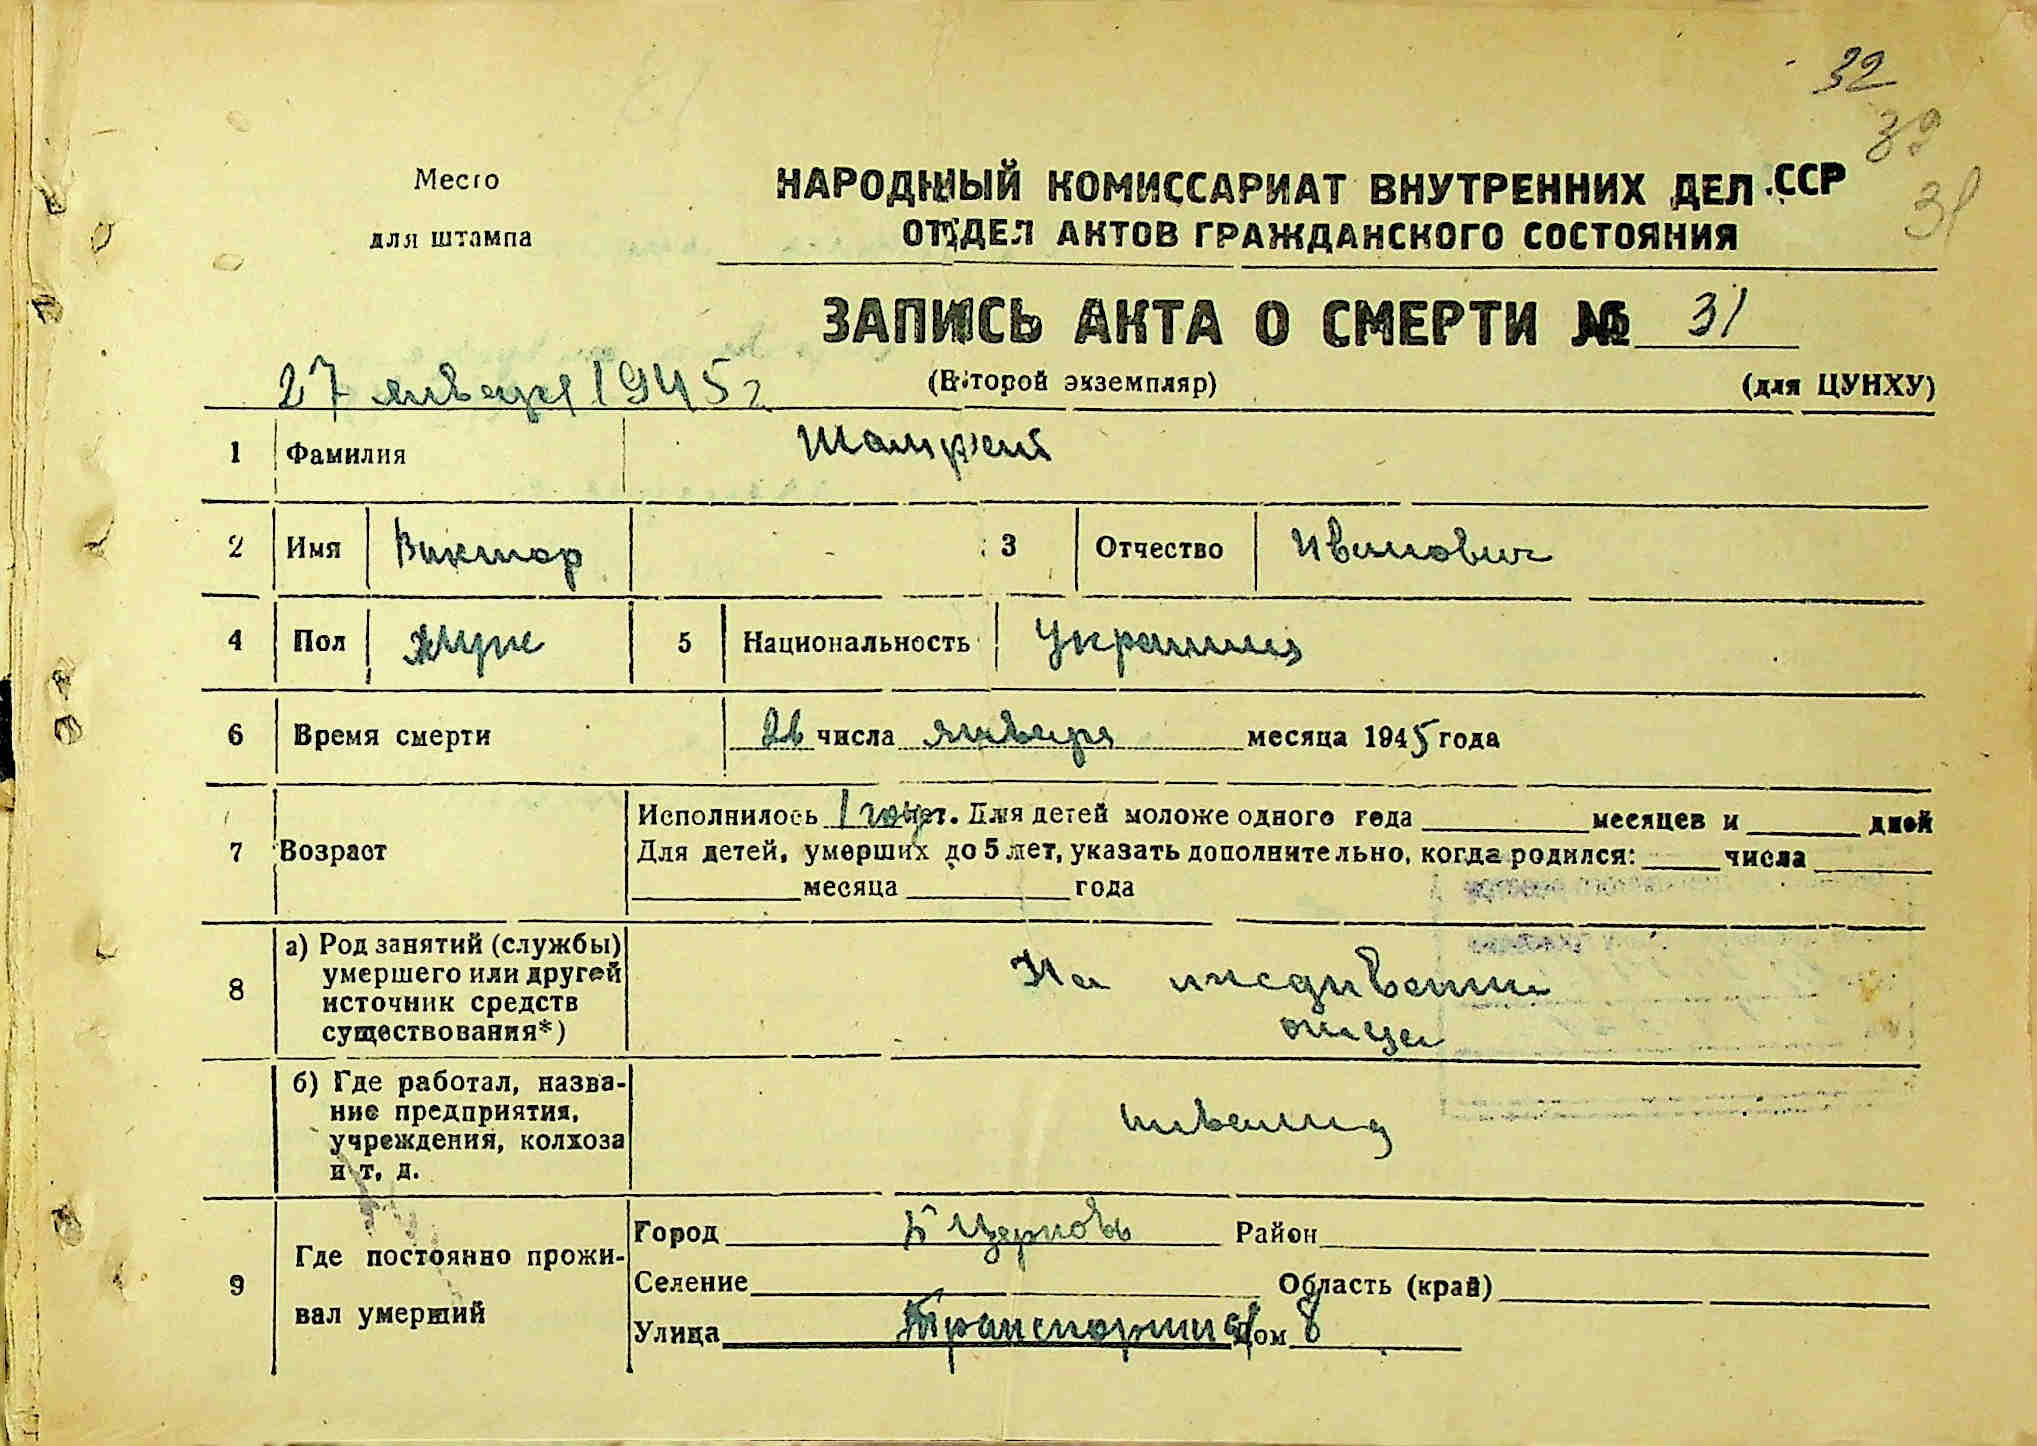 32
39
31
Место
для штампа
НАРОДНЫЙ КОМИССАРИАТ ВНУТРЕННИХ ДЕЛ ССР
ОТДЕЛ АКТОВ ГРАЖДАНСКОГО СОСТОЯНИЯ
ЗАПИСЬ АКТА О СМЕРТИ № 31
27 января 1945 г
(Второй экземпляр)
(для ЦУНХУ)
1 Фамилия Шамрай
2 Имя Виктор 3 Отчество Иванович
4 Пол муж 5 Национальность украинец
6 Время смерти 26 числа января месяца 1945 года
7 Возраст
Исполнилось 1 год лет. Для детей моложе одного года месяцев и дней
Для детей, умерших до 5 лет, указать дополнительно, когда родился: числа
месяца года
8
а) Род занятий (службы)
умершего или другой
источник средств
существования*)
На иждивении
отца
б) Где работал, назва-
ние предприятия,
учреждения, колхоза
и т. д.
инвалид
9
Где постоянно прожи-
вал умерший
Город Б Церковь Район
Селение Область (край)
Улица Транспортная Дом 8